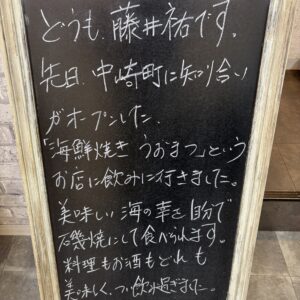 どうも、藤井祐です。
先日、中崎町に知り合い
がオープンした、
「海鮮焼き うおまつ」という
お店に飲みに行きました。
美味しい海の幸を自分で
磯焼にして食べられます。
料理もお酒もどれも
美味しく、つい飲み過ぎました。